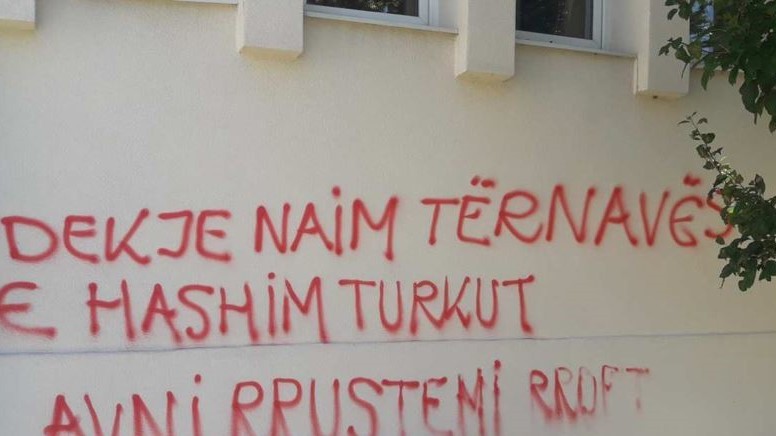 DEKJE NAIM TËRNAVËS
E HASHIM TURKUT
AVNI RRUSTEMI RROFT